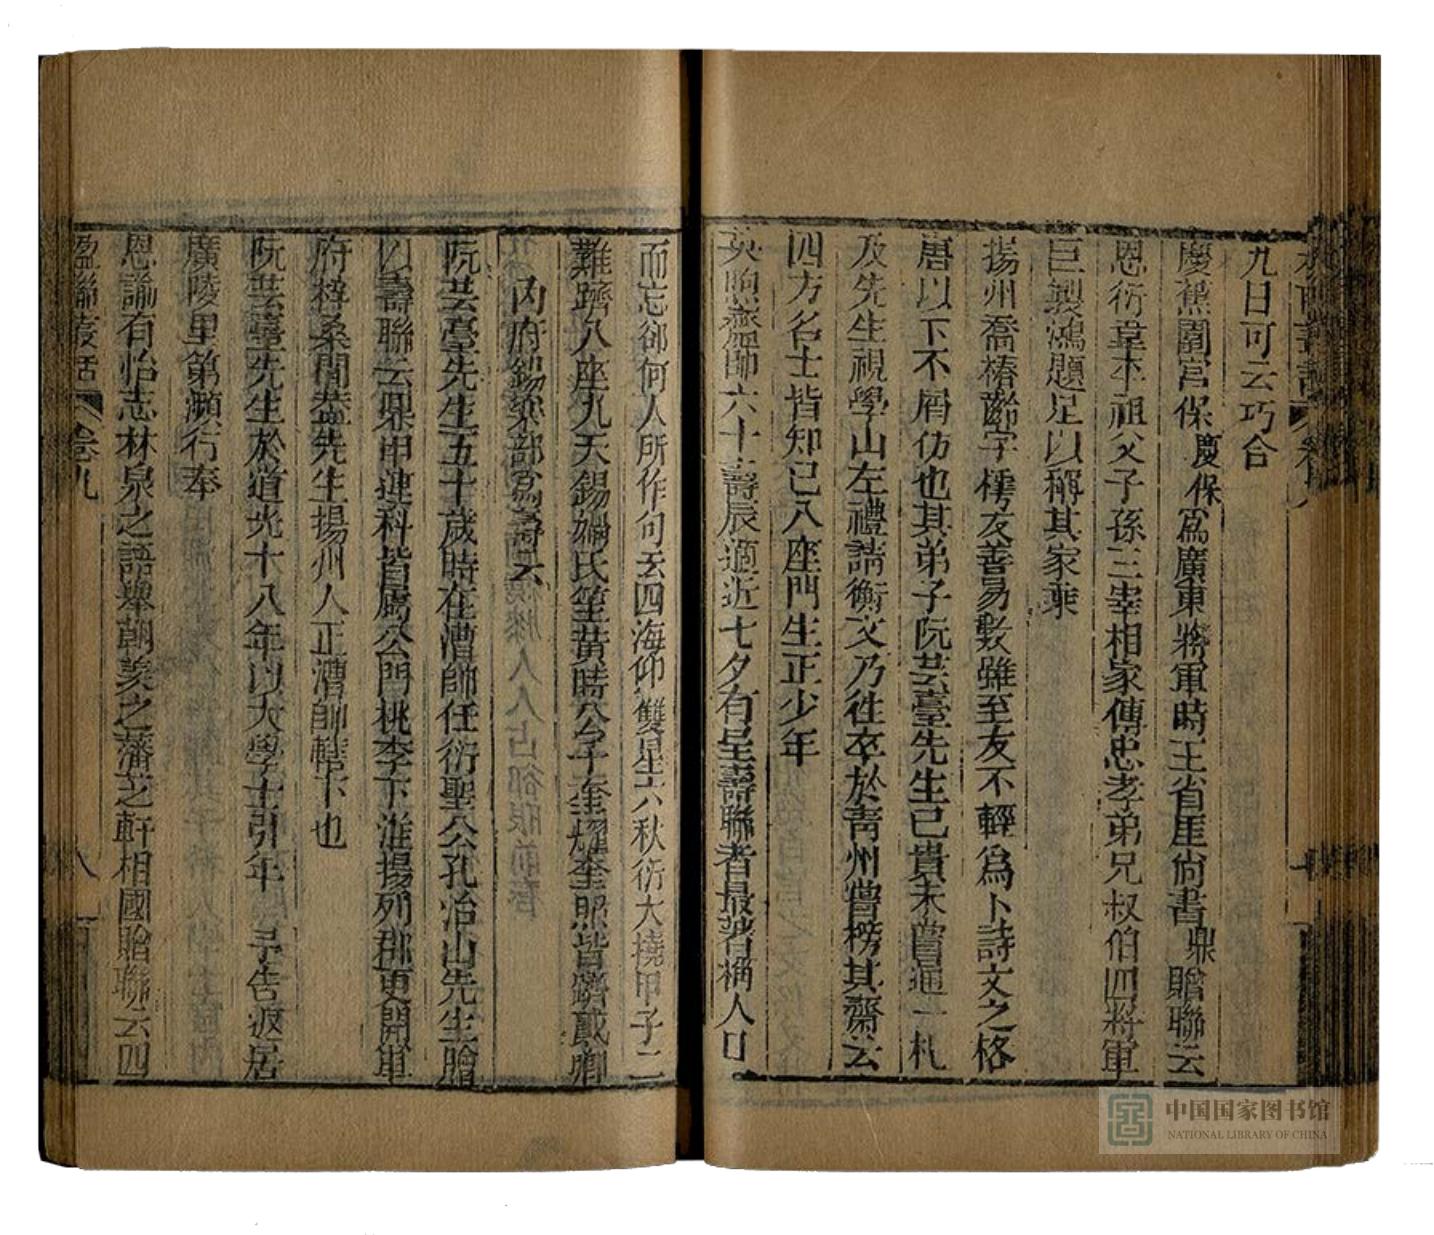 九日可云巧合
慶蕉園宮保慶保爲廣東將軍時王省厓尙書鼎贈聯云
恩衍韋平祖父子孫三宰相家傳忠孝弟兄叔伯四將軍
巨製鴻題足以稱其家乘
揚州喬椿齡字樗友善易數雖至友不輕爲卜詩文之格
唐以下不屑仿也其弟子阮芸臺先生已貴未嘗通一札
及先生視學山左禮請衡文乃往卒於靑州嘗榜其齋云
四方名士皆知已八座門生正少年
英煦齋師六十壽辰適近七夕有呈壽聯者最著稱人口
而忘卻何人所作句云四海仰雙星六秋衍大撓甲子二
難躋八座九天錫嫻氏笙黃時公子奎耀奎照皆躋貳卿
內府錫梨部爲壽云
阮芸臺先生五十歲時在漕帥任衍聖公孔冶山先生贈
以壽聯云鼎甲連科皆屬公門桃李下淮揚列郡更開軍
府梓桑間葢先生揚州人正漕帥轄下也
阮芸臺先生於道光十八年以大學士引年予告返居
廣陵里第瀕行奉
恩諭有怡志林泉之語舉朝羡之潘芝軒相國贈聯云四
楹聯叢話 卷九 八